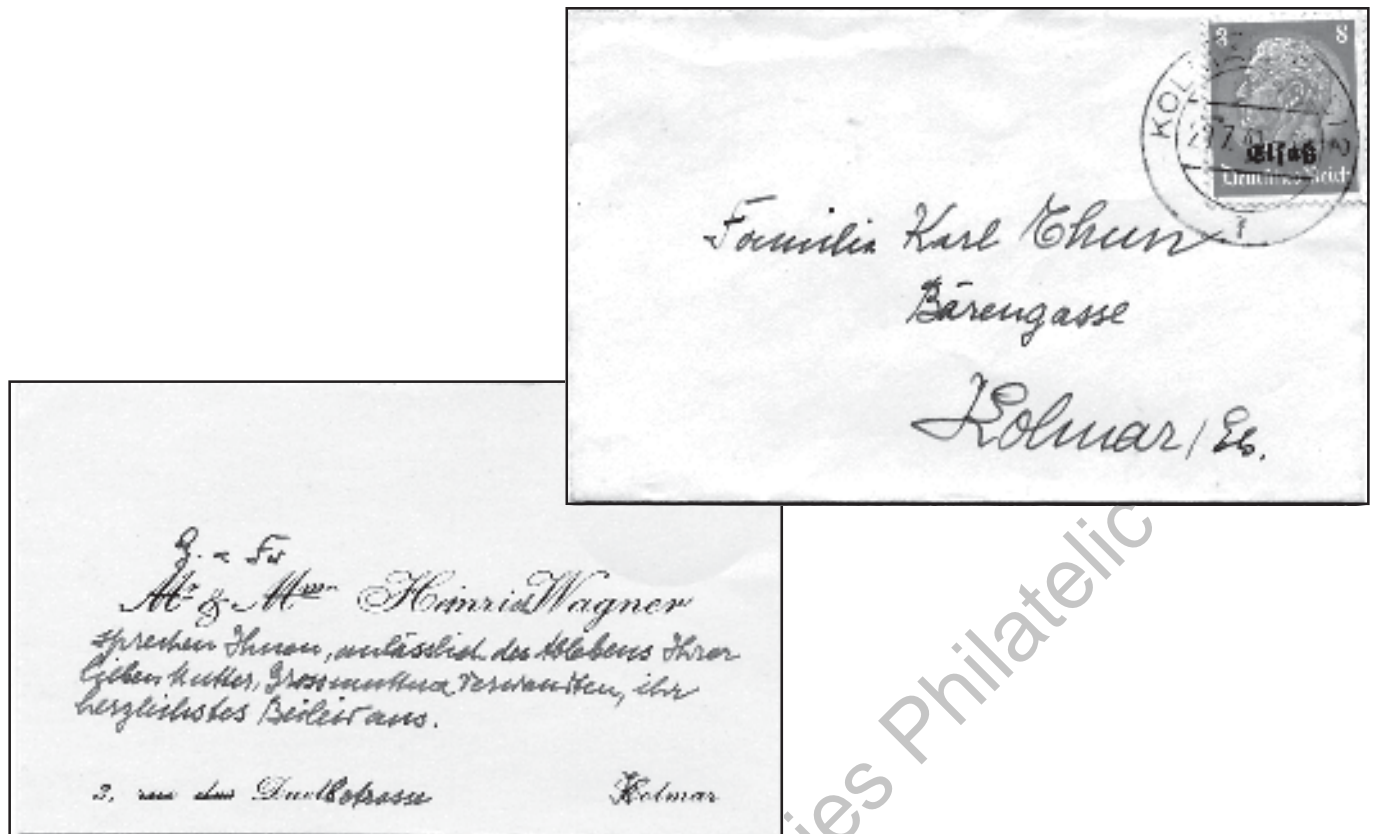 3 8
Elsaß
Deutsches Reich
KOL
f
Familie Karl Thun
Bärengasse
Kolmar / Els.
H. & Fr
Mr & Mme Heinrich Wagner
sprechen Ihnen, anlässlich des Ablebens Ihrer
lieben Mutter, Grossmutter & Verwandten, ihr
herzlichstes Beileid aus.
2, rue
Kolmar
ies Philatelic